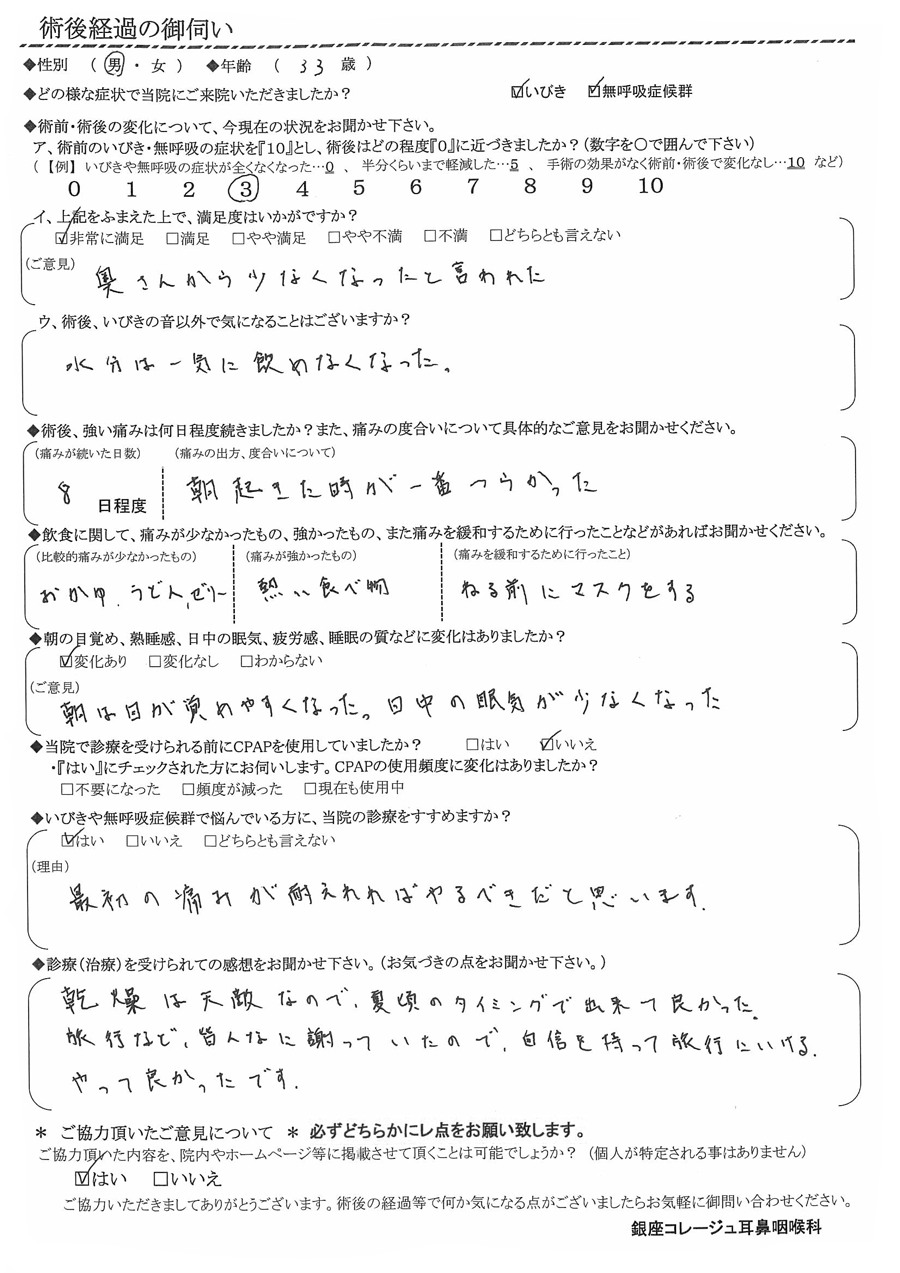 術後経過の御伺い
◆性別 （ 男 ・ 女 ） ◆年齢 （ 33 歳 ）
◆どの様な症状で当院にご来院いただきましたか？ ☑いびき ☑無呼吸症候群
◆術前・術後の変化について、今現在の状況をお聞かせ下さい。
ア、術前のいびき・無呼吸の症状を『10』とし、術後はどの程度『0』に近づきましたか？(数字を〇で囲んで下さい)
（ 【例】 いびきや無呼吸の症状が全くなくなった…0 、 半分くらいまで軽減した…5 、 手術の効果がなく術前・術後で変化なし…10 など）
0 1 2 3 4 5 6 7 8 9 10
イ、上記をふまえた上で、満足度はいかがですか？
☑非常に満足 □満足 □やや満足 □やや不満 □不満 □どちらとも言えない
(ご意見)
奥さんから少なくなったと言われた
ウ、術後、いびきの音以外で気になることはございますか？
水分は一気に飲めなくなった。
◆術後、強い痛みは何日程度続きましたか？また、痛みの度合いについて具体的なご意見をお聞かせください。
(痛みが続いた日数) (痛みの出方、度合いについて)
8 日程度 朝起きた時が一番つらかった
◆飲食に関して、痛みが少なかったもの、強かったもの、また痛みを緩和するために行ったことなどがあればお聞かせください。
(比較的痛みが少なかったもの) (痛みが強かったもの) (痛みを緩和するために行ったこと)
おかゆ、うどん、ゼリー 熱い食べ物 ねる前にマスクをする
◆朝の目覚め、熟睡感、日中の眠気、疲労感、睡眠の質などに変化はありましたか？
☑変化あり □変化なし □わからない
(ご意見)
朝は目が覚めやすくなった。日中の眠気が少なくなった
◆当院で診療を受けられる前にCPAPを使用していましたか？ □はい ☑いいえ
・『はい』にチェックされた方にお伺いします。CPAPの使用頻度に変化はありましたか？
□不要になった □頻度が減った □現在も使用中
◆いびきや無呼吸症候群で悩んでいる方に、当院の診療をすすめますか？
☑はい □いいえ □どちらとも言えない
(理由)
最初の痛みが耐えれればやるべきだと思います.
◆診療(治療)を受けられての感想をお聞かせ下さい。(お気づきの点をお聞かせ下さい。)
乾燥は天敵なので、夏頃のタイミングで出来て良かった。
旅行など、皆んなに謝っていたので、自信を持って旅行にいける.
やって良かったです.
＊ ご協力頂いたご意見について ＊ 必ずどちらかにレ点をお願い致します。
ご協力頂いた内容を、院内やホームページ等に掲載させて頂くことは可能でしょうか？ (個人が特定される事はありません)
☑はい □いいえ
ご協力いただきましてありがとうございます。術後の経過等で何か気になる点がございましたらお気軽に御問い合わせください。
銀座コレージュ耳鼻咽喉科